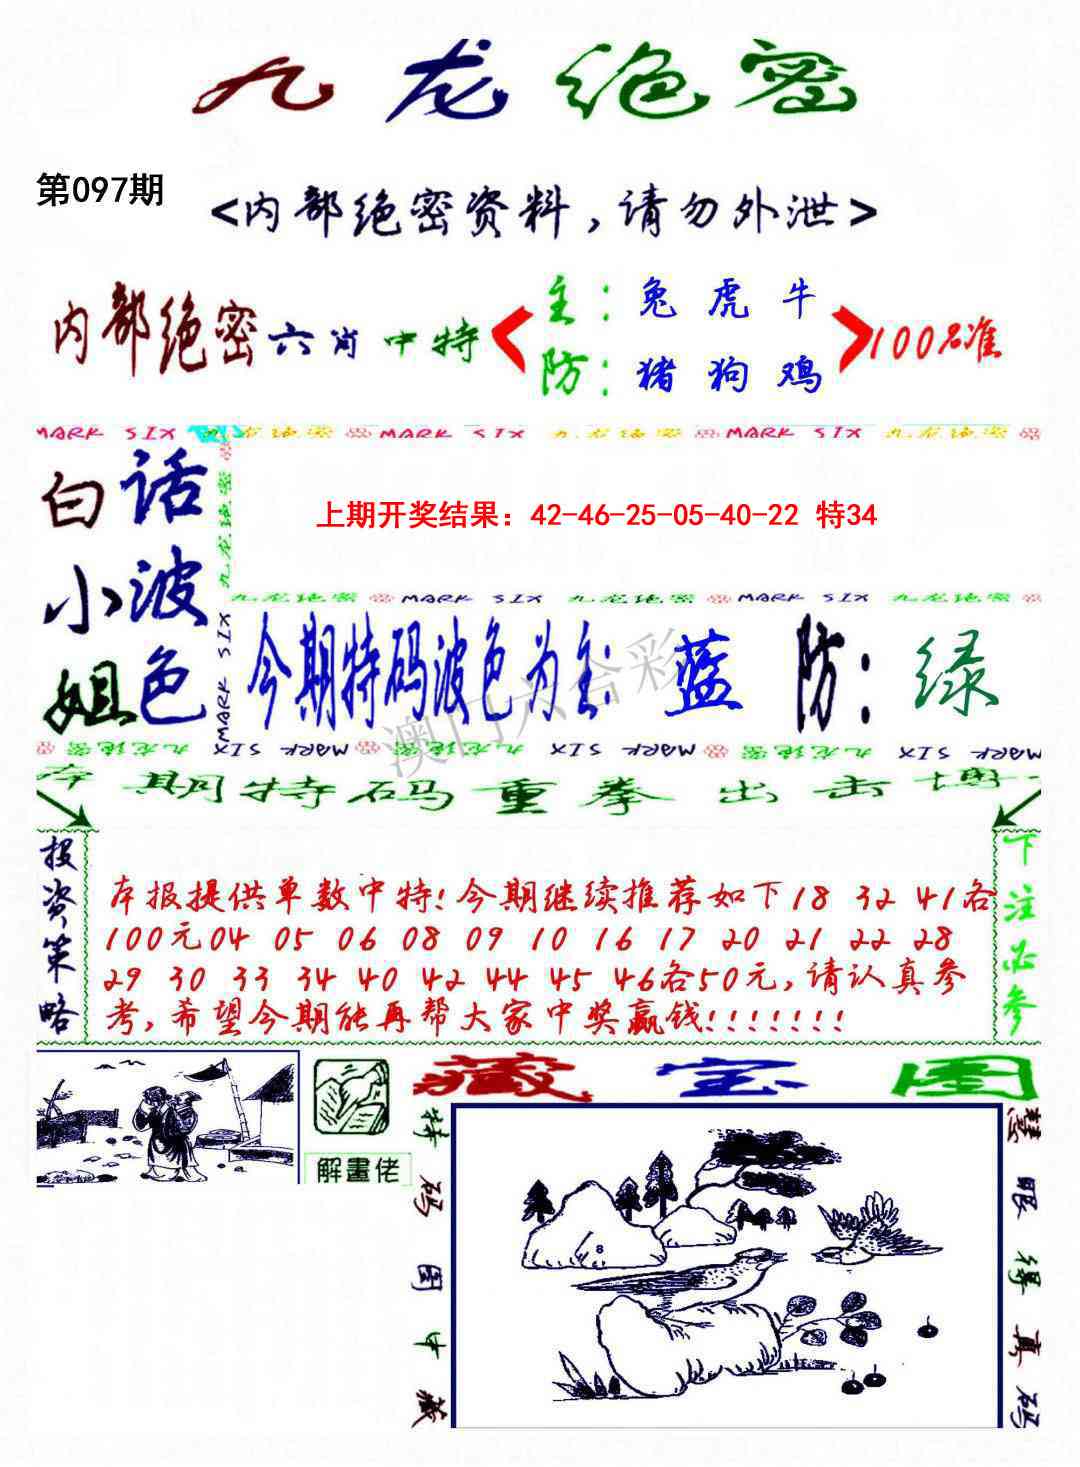 九龙绝密
第097期
<内部绝密资料,请勿外泄>
内部绝密六肖中特
主:兔虎牛
防:猪狗鸡
100%准
MARK SIX 九龙绝密 MARK SIX 九龙绝密 MARK SIX 九龙绝密
白话
小波
姐色
九龙绝密 MARK SIX
上期开奖结果：42-46-25-05-40-22 特34
九龙绝密 MARK SIX 九龙绝密 MARK SIX 九龙绝密
今期特码波色为主:蓝 防:绿
澳门六合彩
九龙绝密 MARK SIX 九龙绝密 MARK SIX 九龙绝密 MARK SIX
本期特码重拳出击博
投资策略
下注必参
本报提供单数中特!今期继续推荐如下18 32 41各
100元04 05 06 08 09 10 16 17 20 21 22 28
29 30 33 34 40 42 44 45 46各50元,请认真参
考,希望今期能再帮大家中奖赢钱!!!!!!!
解畫佬
藏宝图
特码图中藏
慧眼得真码
8